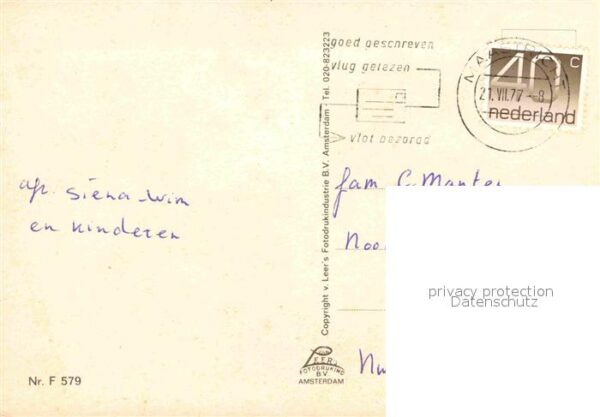 goed geschreven
vlug gelezen
vlot bezorgd
40 C
nederland
21.VII.77 -8
MAASTRICHT
afz. Siena-Wim
en kinderen
fam C. Mante
Noo
privacy protection
Datenschutz
Copyright v. Leer's Fotodrukindustrie B.V. Amsterdam - Tel. 020-823223
van
LEER's
FOTODRUKIND
B.V.
AMSTERDAM
Nr. F 579